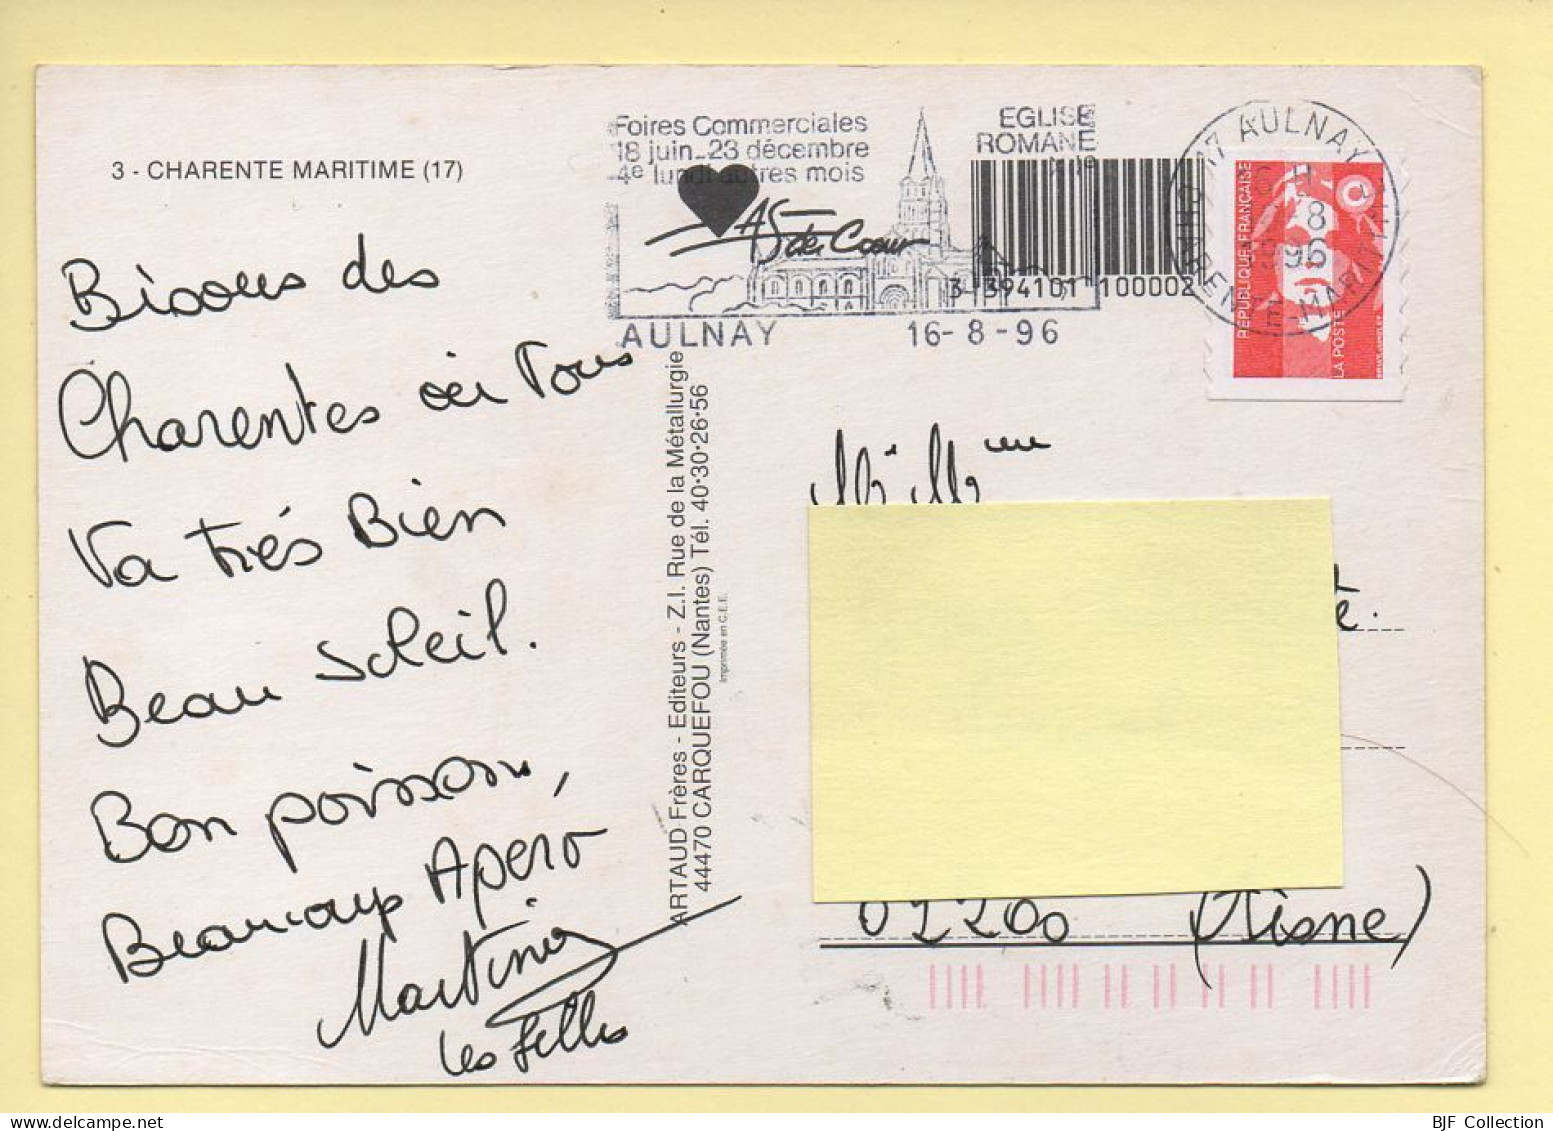 3 - CHARENTE MARITIME (17)
Bisous des
Charentes où Tous
Va très Bien
Beau Soleil.
Bon poisson,
Beaucoup Apero
Martine
les filles
Foires Commerciales
18 juin_23 décembre
4e lundi autres mois
EGLISE
ROMANE
AS de Coeur
3 394101 100002
AULNAY 16-8-96
17 AULNAY
8
1996
REPUBLIQUE FRANÇAISE
LA POSTE
ARTAUD Frères - Editeurs - Z.I. Rue de la Métallurgie
44470 CARQUEFOU (Nantes) Tél. 40·30·26·56
Imprimée en C.E.E.
02200 (Aisne)
BJF Collection